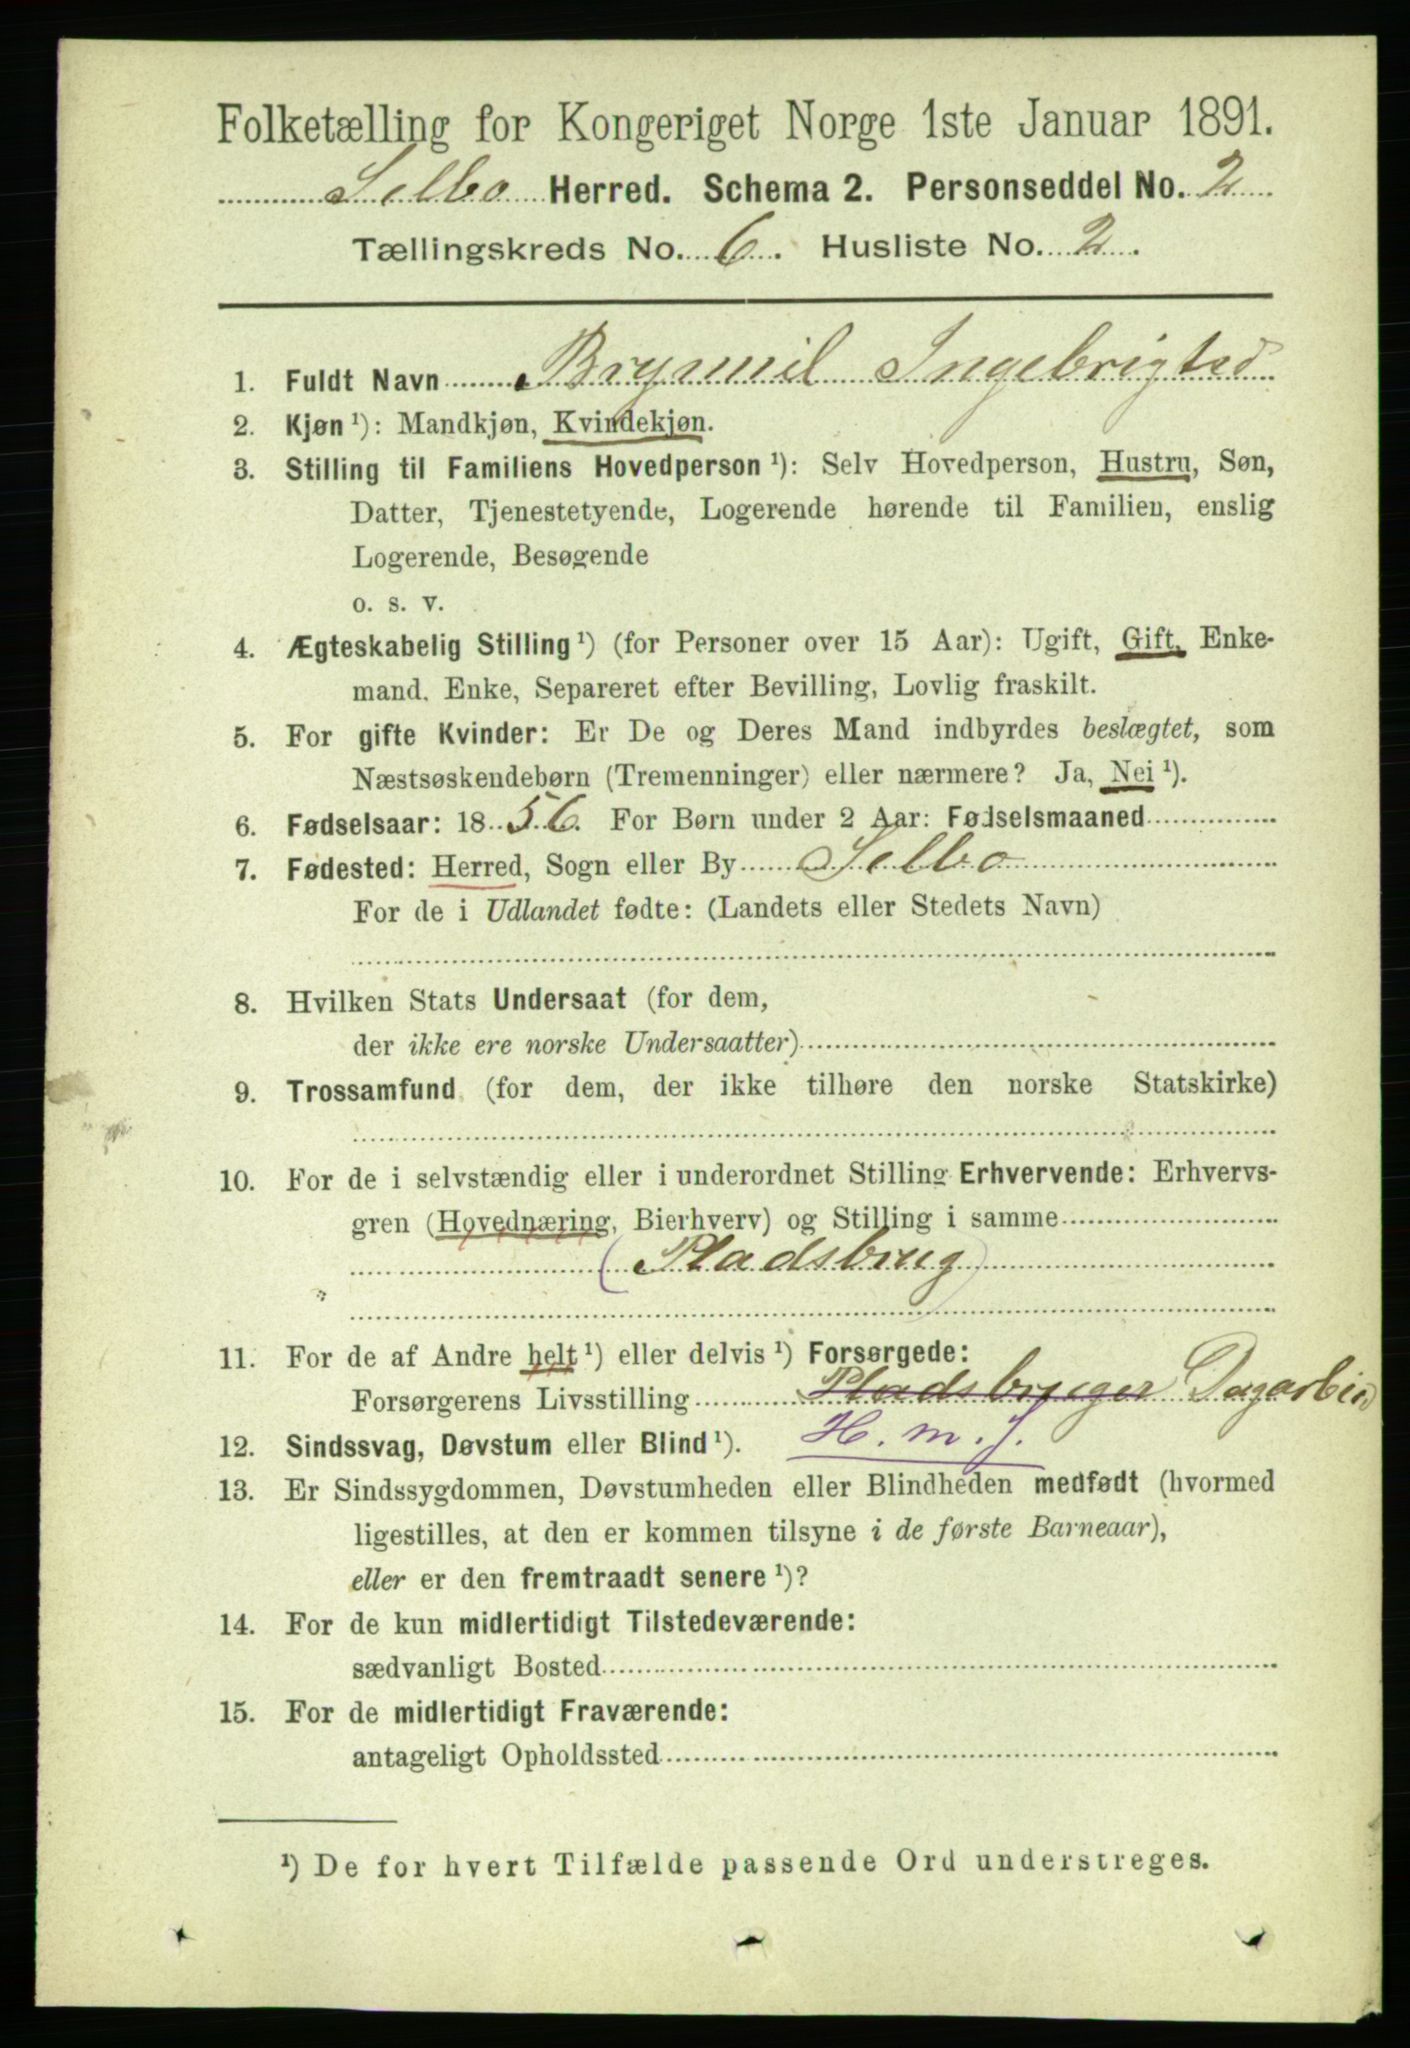 Folketælling for Kongeriget Norge 1ste Januar 1891.
Selbo Herred. Schema 2. Personseddel No. 2
Tællingskreds No. 6. Husliste No. 2.
1. Fuldt Navn Brynnil Ingebrigtsd
2. Kjøn ¹): Mandkjøn, Kvindekjøn.
3. Stilling til Familiens Hovedperson ¹): Selv Hovedperson, Hustru, Søn,
Datter, Tjenestetyende, Logerende hørende til Familien, enslig
Logerende, Besøgende
o. s. v.
4. Ægteskabelig Stilling ¹) (for Personer over 15 Aar): Ugift, Gift, Enke-
mand, Enke, Separeret efter Bevilling, Lovlig fraskilt.
5. For gifte Kvinder: Er De og Deres Mand indbyrdes beslægtet, som
Næstsøskendebørn (Tremenninger) eller nærmere? Ja, Nei ¹).
6. Fødselsaar: 1856. For Børn under 2 Aar: Fødselsmaaned
7. Fødested: Herred, Sogn eller By Selbo
For de i Udlandet fødte: (Landets eller Stedets Navn)
8. Hvilken Stats Undersaat (for dem,
der ikke ere norske Undersaatter)
9. Trossamfund (for dem, der ikke tilhøre den norske Statskirke)
10. For de i selvstændig eller i underordnet Stilling Erhvervende: Erhvervs-
gren (Hovednæring, Bierhverv) og Stilling i samme
(Pladsbrug)
11. For de af Andre helt ¹) eller delvis ¹) Forsørgede:
Forsørgerens Livsstilling Pladsbruger Dagarbeid
12. Sindssvag, Døvstum eller Blind ¹). H. m. j.
13. Er Sindssygdommen, Døvstumheden eller Blindheden medfødt (hvormed
ligestilles, at den er kommen tilsyne i de første Barneaar),
eller er den fremtraadt senere ¹)?
14. For de kun midlertidigt Tilstedeværende:
sædvanligt Bosted
15. For de midlertidigt Fraværende:
antageligt Opholdssted
¹) De for hvert Tilfælde passende Ord understreges.